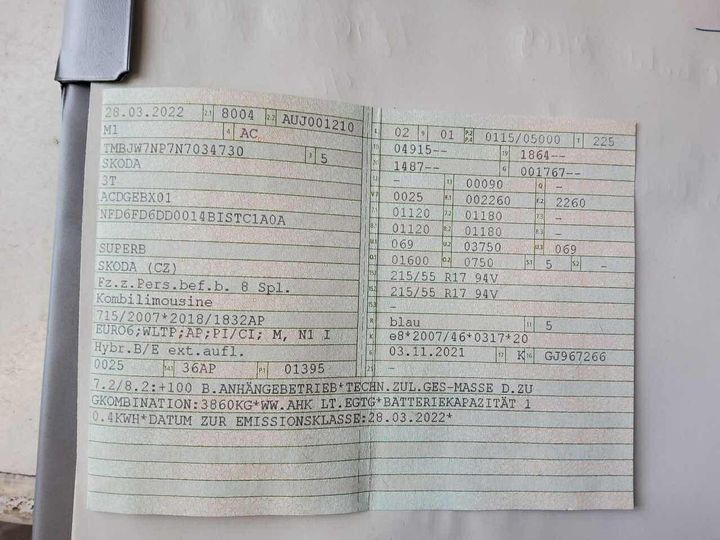 28.03.2022 2.1 8004 2.2 AUJ001210
M1 4 AC
TMBJW7NP7N7034730 3 5
SKODA
3T
ACDGEBX01
NFD6FD6DD0014BISTC1A0A
SUPERB
SKODA (CZ)
Fz.z.Pers.bef.b. 8 Spl.
Kombilimousine
715/2007*2018/1832AP
EURO6;WLTP;AP;PI/CI; M, N1 I
Hybr.B/E ext.aufl.
0025 14.1 36AP P.1 01395
02 9 01 P.2 P.4 0115/05000 T 225
04915-- 19 1864--
1487-- G 001767--
- 13 00090 Q -
0025 V.7 002260 F.2 2260
01120 7.2 01180 -
01120 8.2 01180 -
069 U.2 03750 U.3 069
01600 O.2 0750 S.1 5 S.2 -
215/55 R17 94V
215/55 R17 94V
-
blau 11 5
e8*2007/46*0317*20
03.11.2021 17 K 16 GJ967266
7.2/8.2:+100 B.ANHÄNGEBETRIEB*TECHN.ZUL.GES-MASSE D.ZU
GKOMBINATION:3860KG*WW.AHK LT.EGTG*BATTERIEKAPAZITÄT 1
0.4KWH*DATUM ZUR EMISSIONSKLASSE:28.03.2022*